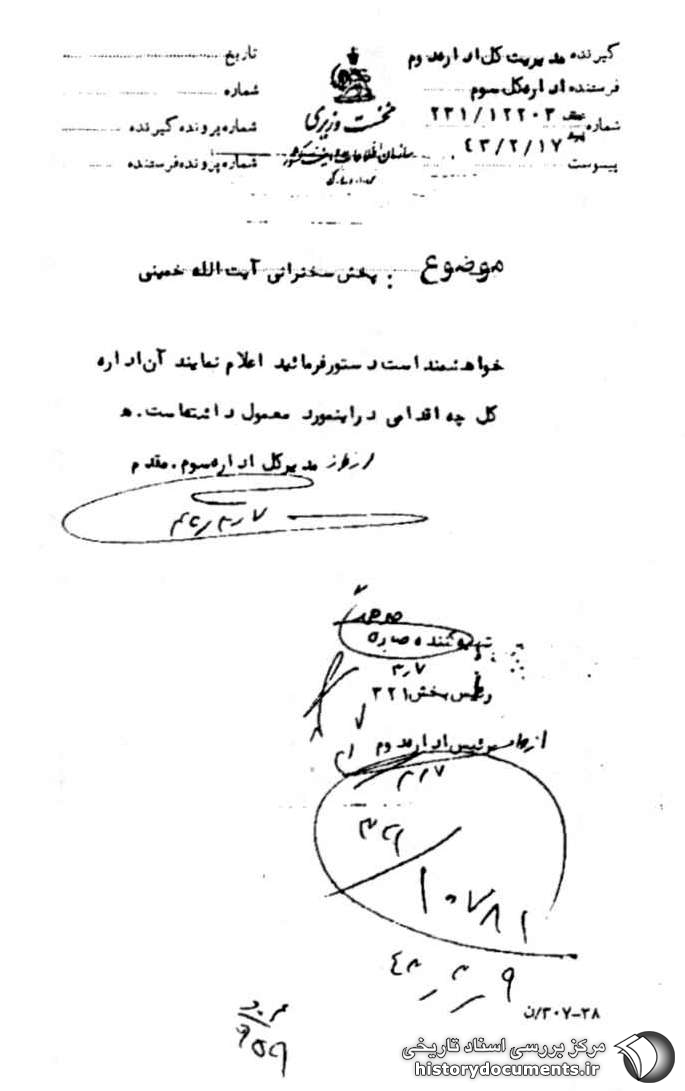 گیرنده مدیریت کل اداره دوم
فرستنده اداره کل سوم
شماره ۲۳۱/۱۲۲۰۳
۴۳/۲/۱۷
پیوست
نخست وزیری
سازمان اطلاعات و امنیت کشور
تاریخ
شماره
شماره پرونده گیرنده
شماره پرونده فرستنده
موضوع : پخش سخنرانی آیت الله خمینی
خواهشمند است دستور فرمائید اعلام نمایند آن اداره
کل چه اقدامی در اینمورد معمول داشته است. ه
از طرف مدیر کل اداره سوم. مقدم
تهیه کننده
رئیس بخش ۳۲۱
از طرف رئیس اداره دوم
۳۲۱
۱۰۷۸۱
۴۳ ر ۳ ر ۹
۳۰۷-۳۸/ن
۹۵۹
مرکز بررسی اسناد تاریخی
historydocuments.ir